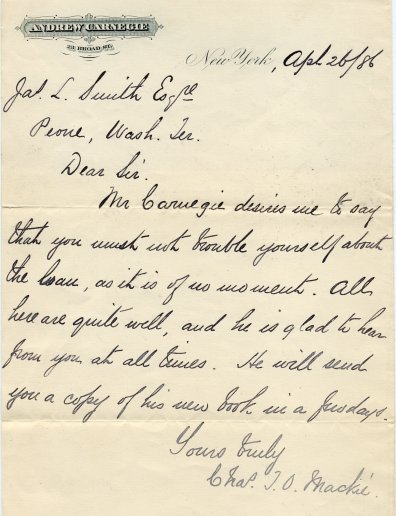 ANDREW CARNEGIE
BROAD ST.
New York, Apl. 26/86
Jas. L. Smith Esqre
Peone, Wash. Ter.
Dear Sir.
Mr Carnegie desires me to say
that you must not trouble yourself about
the loan, as it is of no moment. All
here are quite well, and he is glad to hear
from you at all times. He will send
you a copy of his new book in a few days.
Yours truly
Chas. T. O. Mackie.